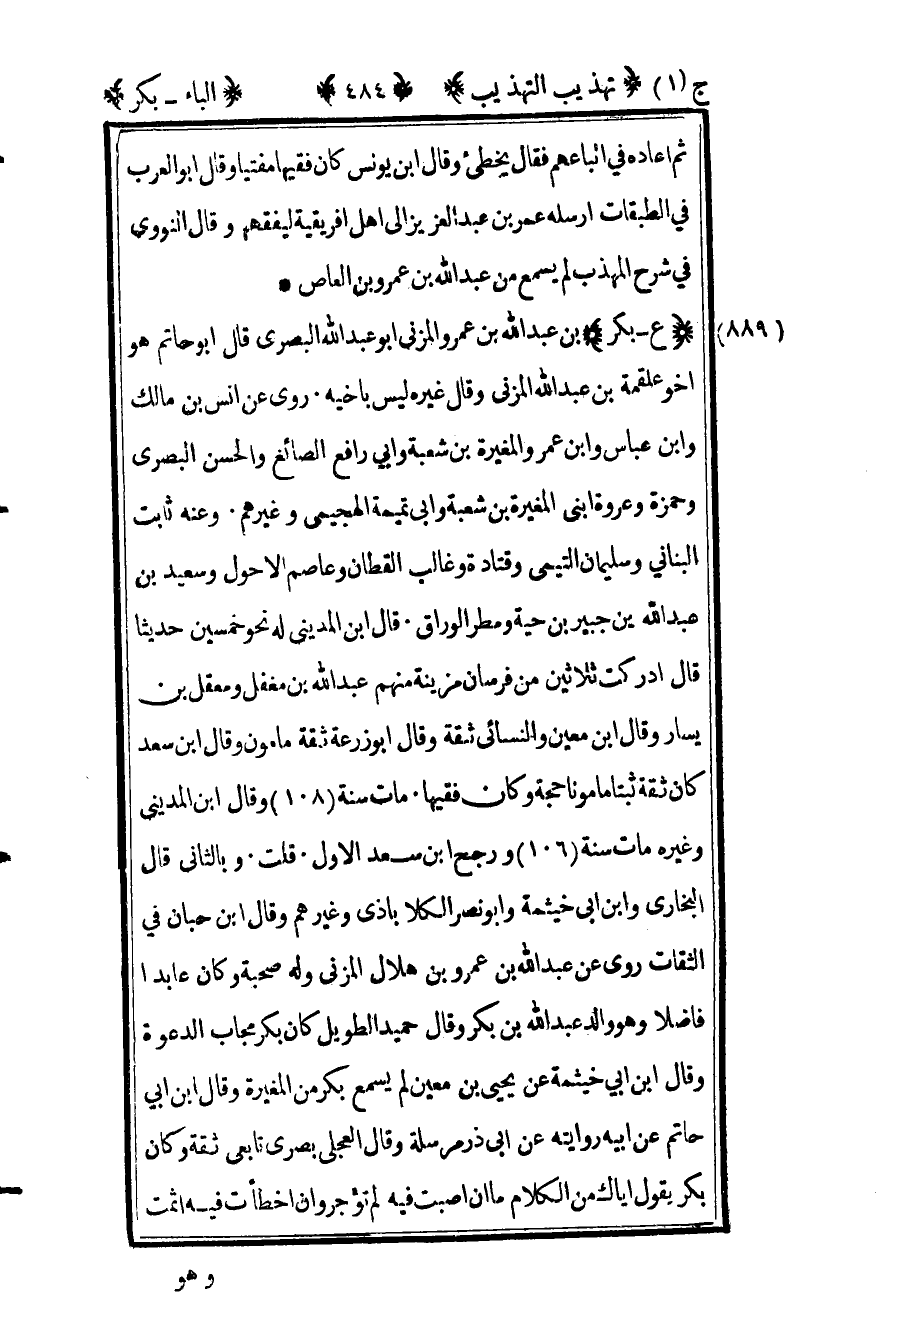 ج (١) ﴿ تهذيب التهذيب ﴾ ﴿ ٤٨٤ ﴾ ﴿ الباء ـ بكر ﴾
ثم اعاده في اتباعهم فقال يخطئ وقال ابن يونس كان فقيها مفتيا وقال ابو العرب
في الطبقات ارسله عمر بن عبد العزيز الى اهل افريقية ليفقههم و قال النووي
في شرح المهذب لم يسمع من عبدالله بن عمرو بن العاص *
(٨٨٩) ﴿ ع ـ بكر ﴾ بن عبدالله بن عمرو المزنى ابو عبدالله البصرى قال ابو حاتم هو
اخو علقمة بن عبدالله المزنى وقال غيره ليس باخيه . روى عن انس بن مالك
وابن عباس وابن عمر والمغيرة بن شعبة وابي رافع الصائغ والحسن البصرى
وحمزة وعروة ابنى المغيرة بن شعبة وابى تميمة الهجيمى و غيرهم . وعنه ثابت
البناني وسليمان التيمى وقتادة وغالب القطان وعاصم الاحول وسعيد بن
عبدالله بن جبير بن حية ومطر الوراق . قال ابن المدينى له نحو خمسين حديثا
قال ادركت ثلاثين من فرسان مزينة منهم عبدالله بن مغفل ومعقل بن
يسار وقال ابن معين والنسائى ثقة وقال ابوزرعة ثقة مامون وقال ابن سعد
كان ثقة ثبتا مامونا حجة وكان فقيها . مات سنة (١٠٨) وقال ابن المديني
وغيره مات سنة (١٠٦) و رجح ابن سعد الاول . قلت . و بالثانى قال
البخارى وابن ابى خيثمة وابونصر الكلا باذى وغيرهم وقال ابن حبان في
الثقات روى عن عبدالله بن عمرو بن هلال المزنى وله صحبة وكان عابدا
فاضلا وهو والد عبدالله بن بكر وقال حميد الطويل كان بكر مجاب الدعوة
وقال ابن ابي خيثمة عن يحيى بن معين لم يسمع بكر من المغيرة وقال ابن ابي
حاتم عن ابيه روايته عن ابى ذر مرسلة وقال العجلى بصرى تابعى ثقة وكان
بكر يقول اياك من الكلام ما ان اصبت فيه لم تؤجر وان اخطأت فيه اثمت
و هو